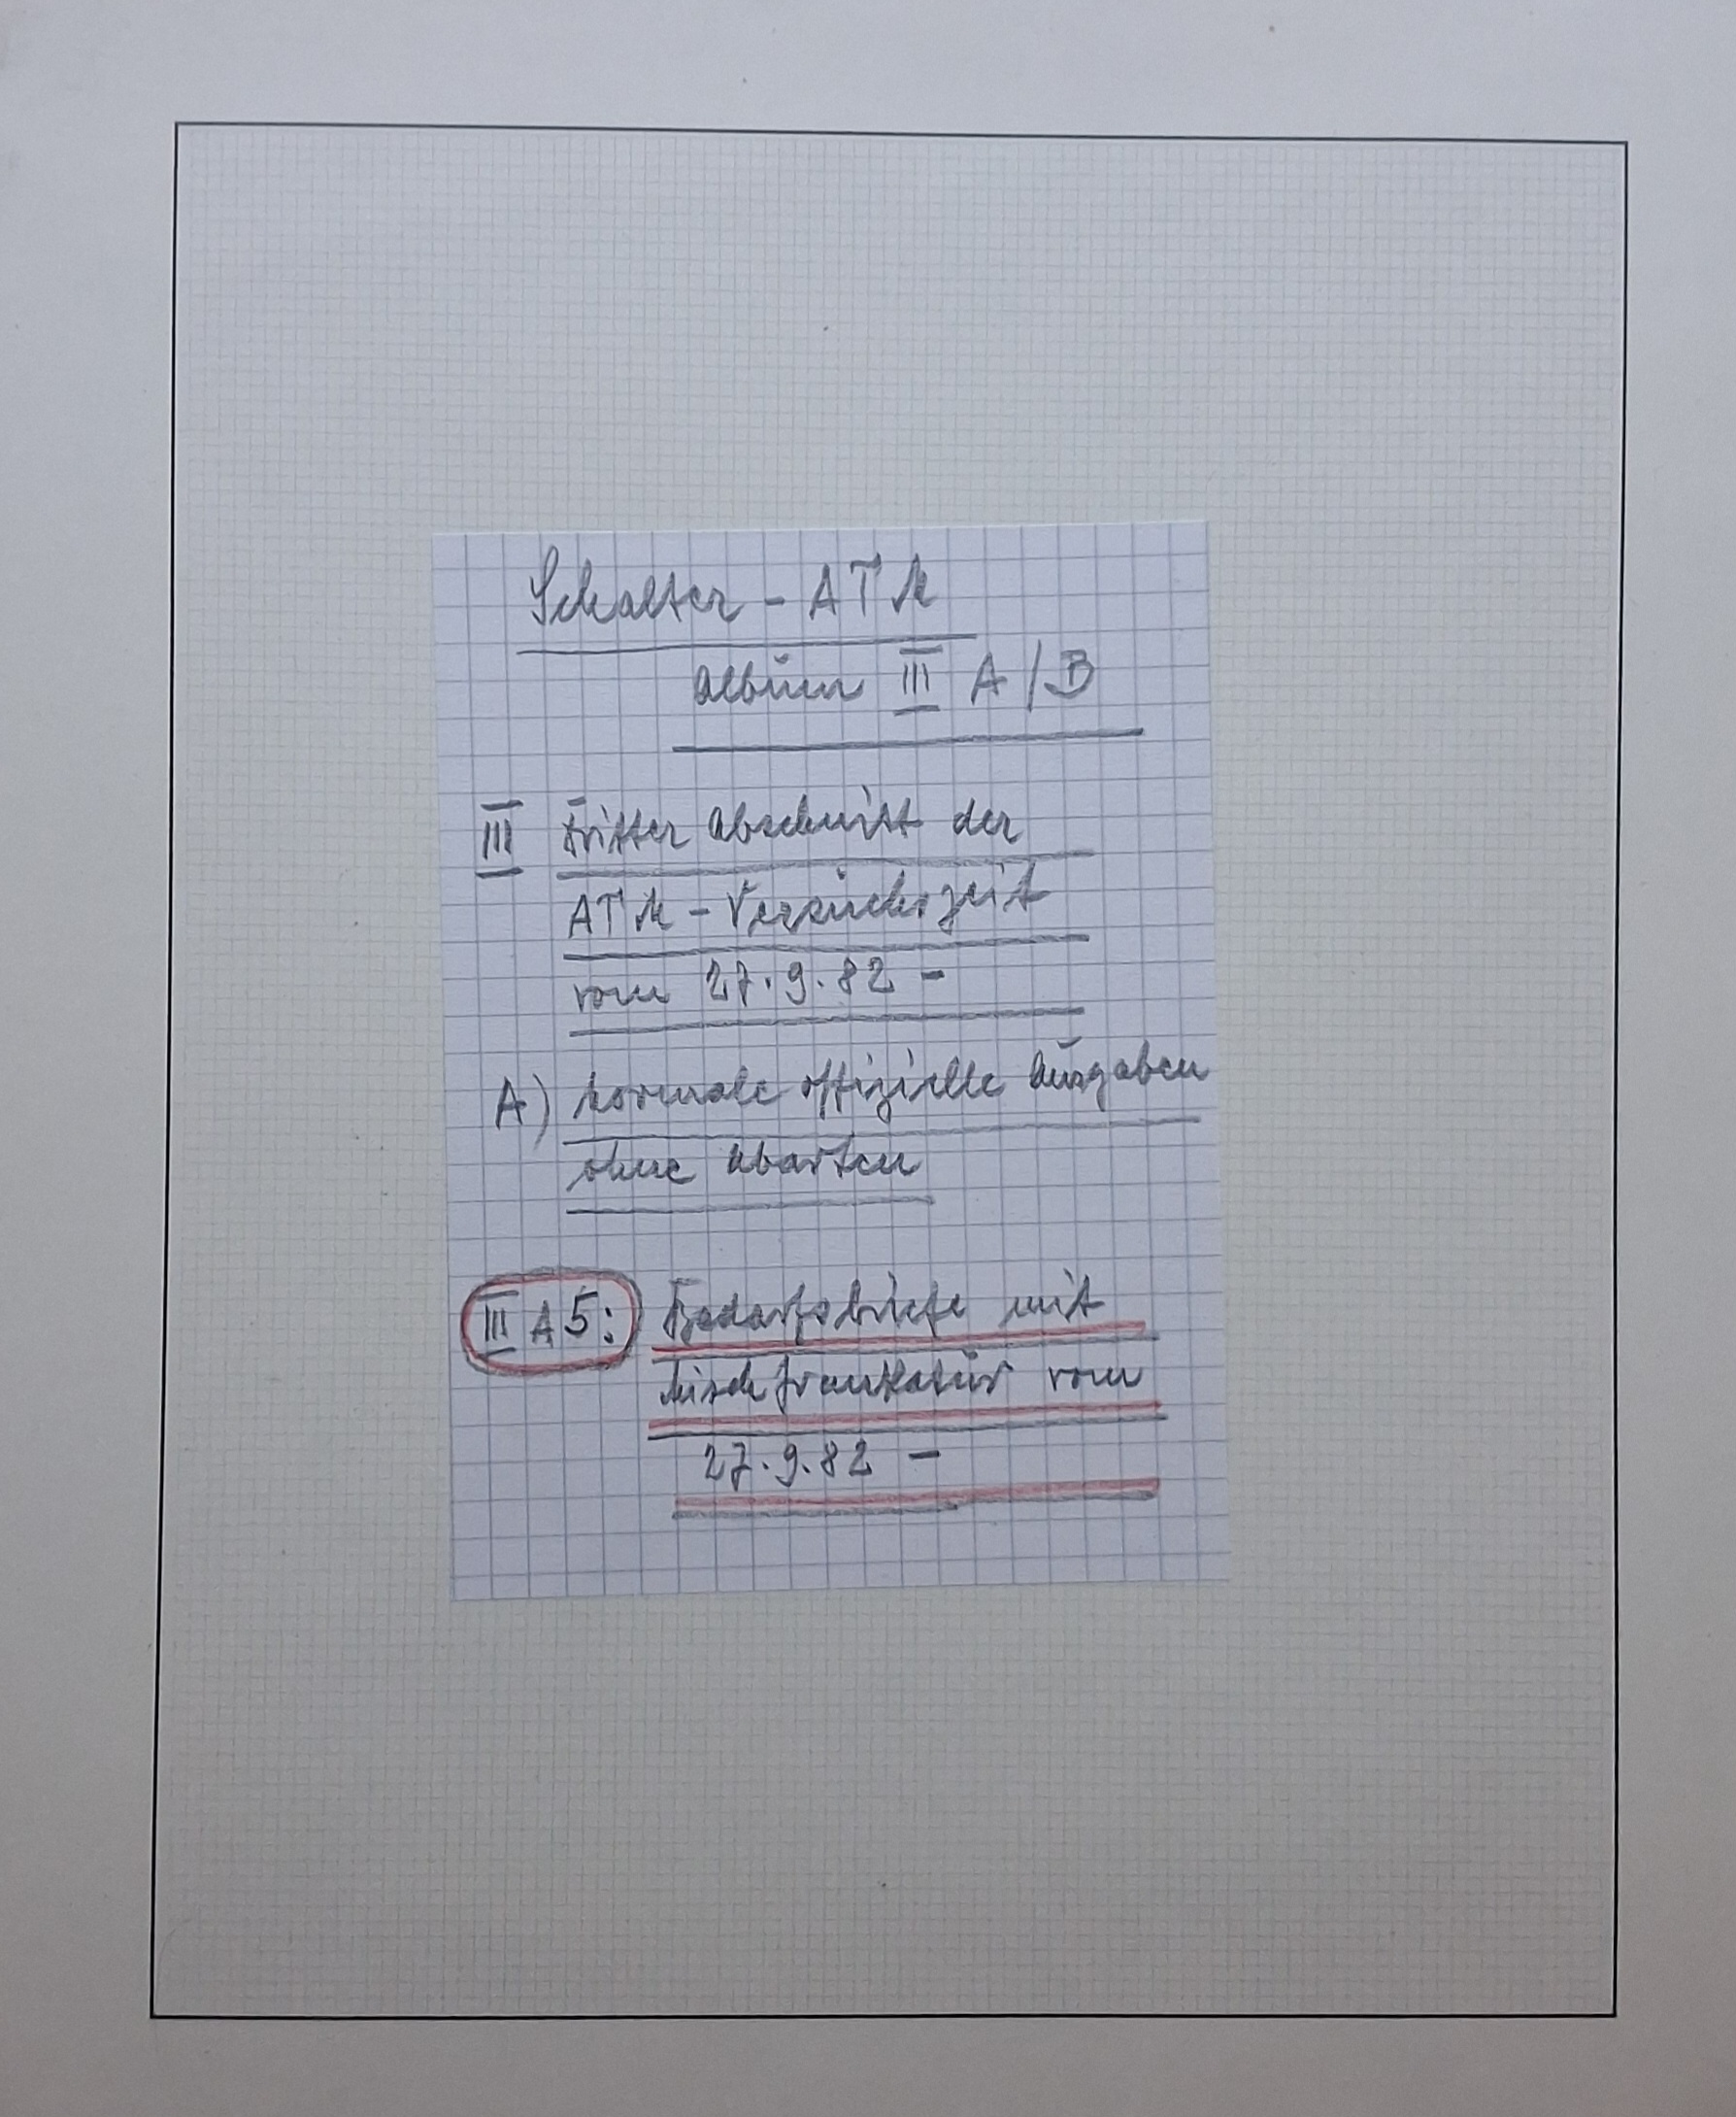 Schalter - ATM
Album III A/B
III Dritter Abschnitt der
ATM - Versuchszeit
vom 27.9.82 -
A) Normale offizielle Ausgaben
ohne Abarten
III A5: Bedarfsbriefe mit
Mischfrankatur vom
27.9.82 -